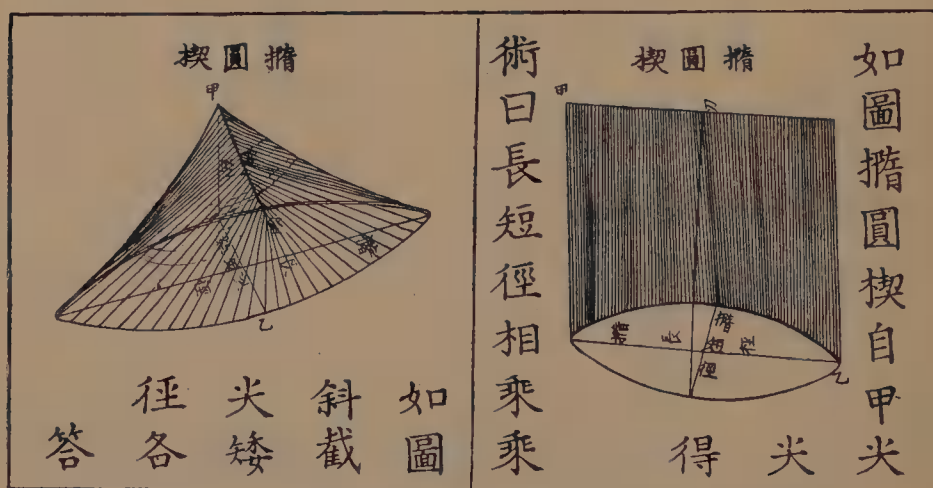 如圖撱圓楔自甲尖
尖
得
撱圓楔
甲
乙
撱
長
徑
撱
短
徑
術曰長短徑相乘乘
撱圓楔
甲
乙
如圖
斜截
尖矮
徑各
答